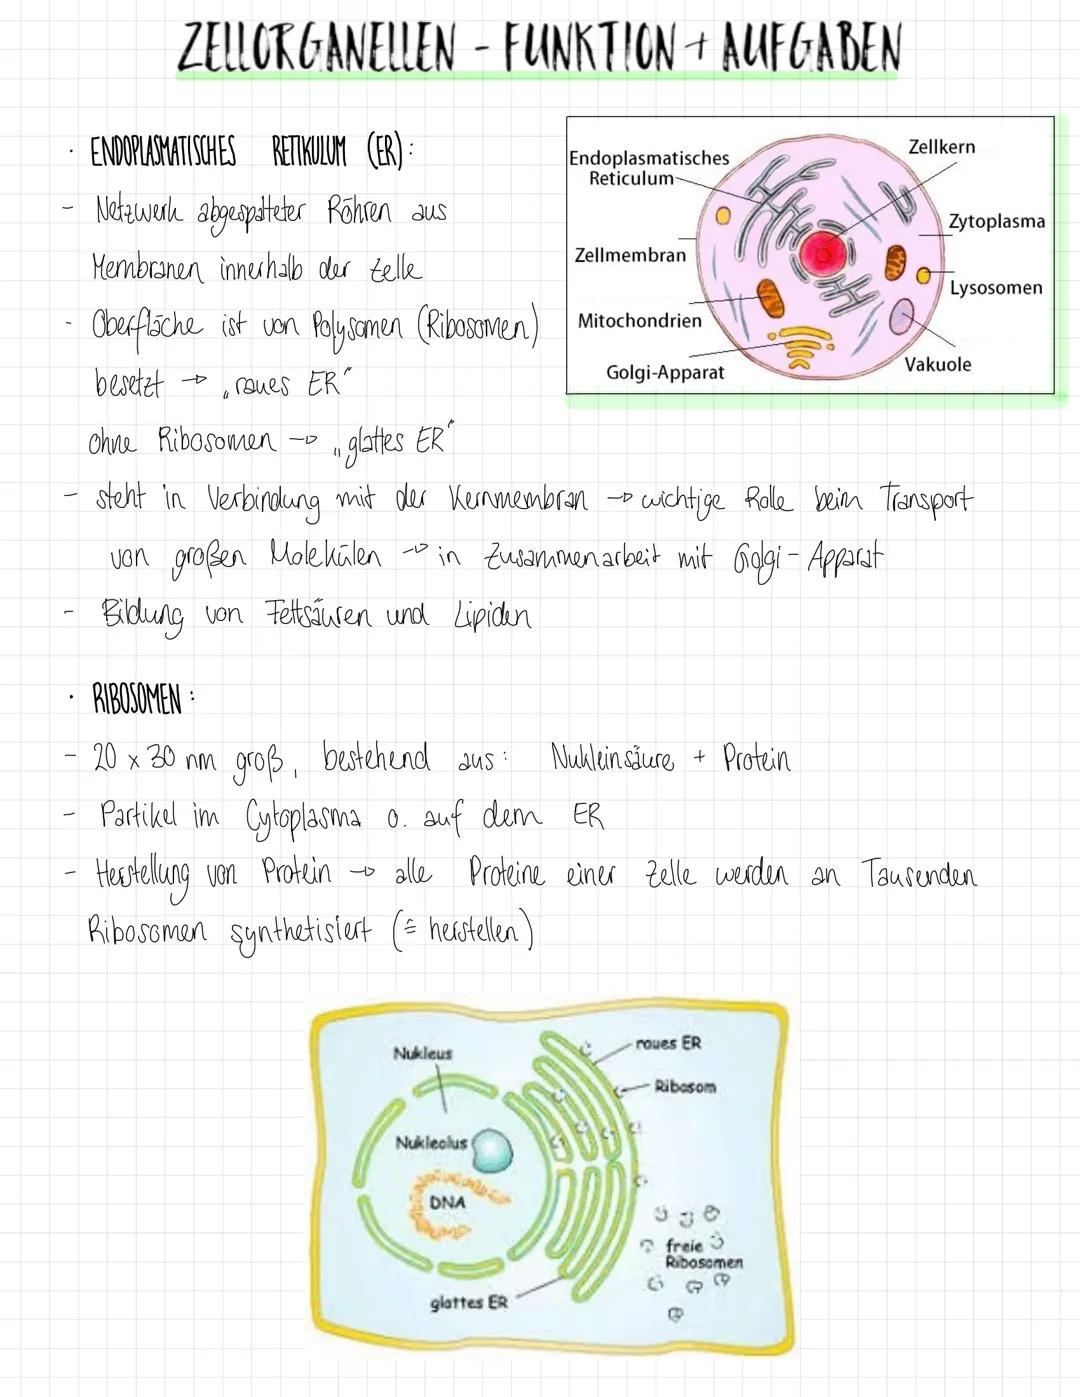 ZELLORGANELLEN - FUNKTION + AUFGABEN
· ENDOPLASMATISCHES RETIKULUM (ER):
- Netzwerk abgespalteter Röhren aus
Membranen innerhalb der Zelle
- Oberfläche ist von Polysomen (Ribosomen)
besetzt → „raues ER"
ohne Ribosomen → „glattes ER"
- steht in Verbindung mit der Kernmembran → wichtige Rolle beim Transport
von großen Molekülen → in Zusammenarbeit mit Golgi-Apparat
- Bildung von Fettsäuren und Lipiden
Endoplasmatisches
Reticulum
Zellmembran
Mitochondrien
Golgi-Apparat
Zellkern
Zytoplasma
Lysosomen
Vakuole
· RIBOSOMEN:
- 20 x 30 nm groß, bestehend aus: Nukleinsäure + Protein
- Partikel im Cytoplasma o. auf dem ER
- Herstellung von Protein → alle Proteine einer Zelle werden an Tausenden
Ribosomen synthetisiert (≙ herstellen)
Nukleus
raues ER
Ribosom
Nukleolus
DNA
freie
Ribosomen
glattes ER